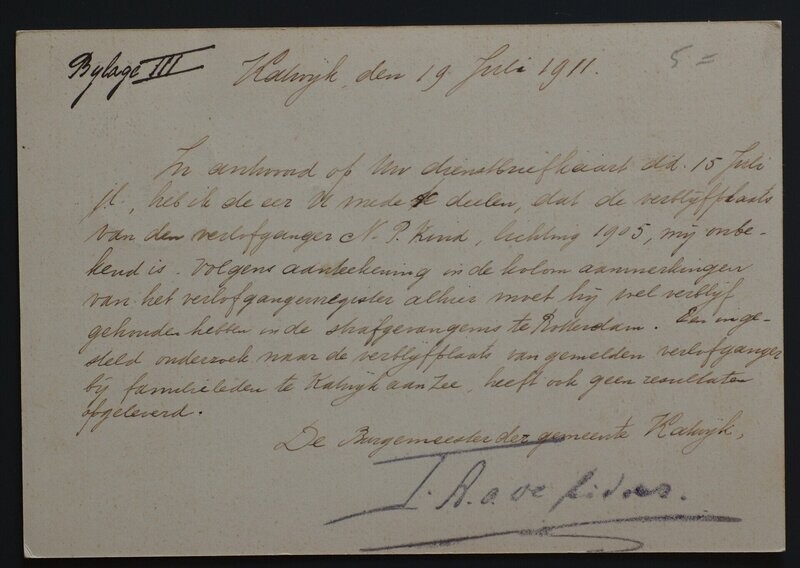 Bylage III
Katwijk, den 19 Juli 1911.
5 =
In antwoord op Uw dienstbriefkaart dd. 15 Juli
jl., heb ik de eer U mede te deelen, dat de verblijfplaats
van den verlofganger N. P. Kind, lichting 1905, mij onbe-
kend is. Volgens aanteekening in de kolom aanmerkingen
van het verlofgangersregister alhier moet hij wel verblijf
gehouden hebben in de strafgevangenis te Rotterdam. Een inge-
steld onderzoek naar de verblijfplaats van gemelden verlofganger
bij familieleden te Katwijk aan Zee, heeft ook geen resultaten
opgeleverd.
De Burgemeester der gemeente Katwijk,